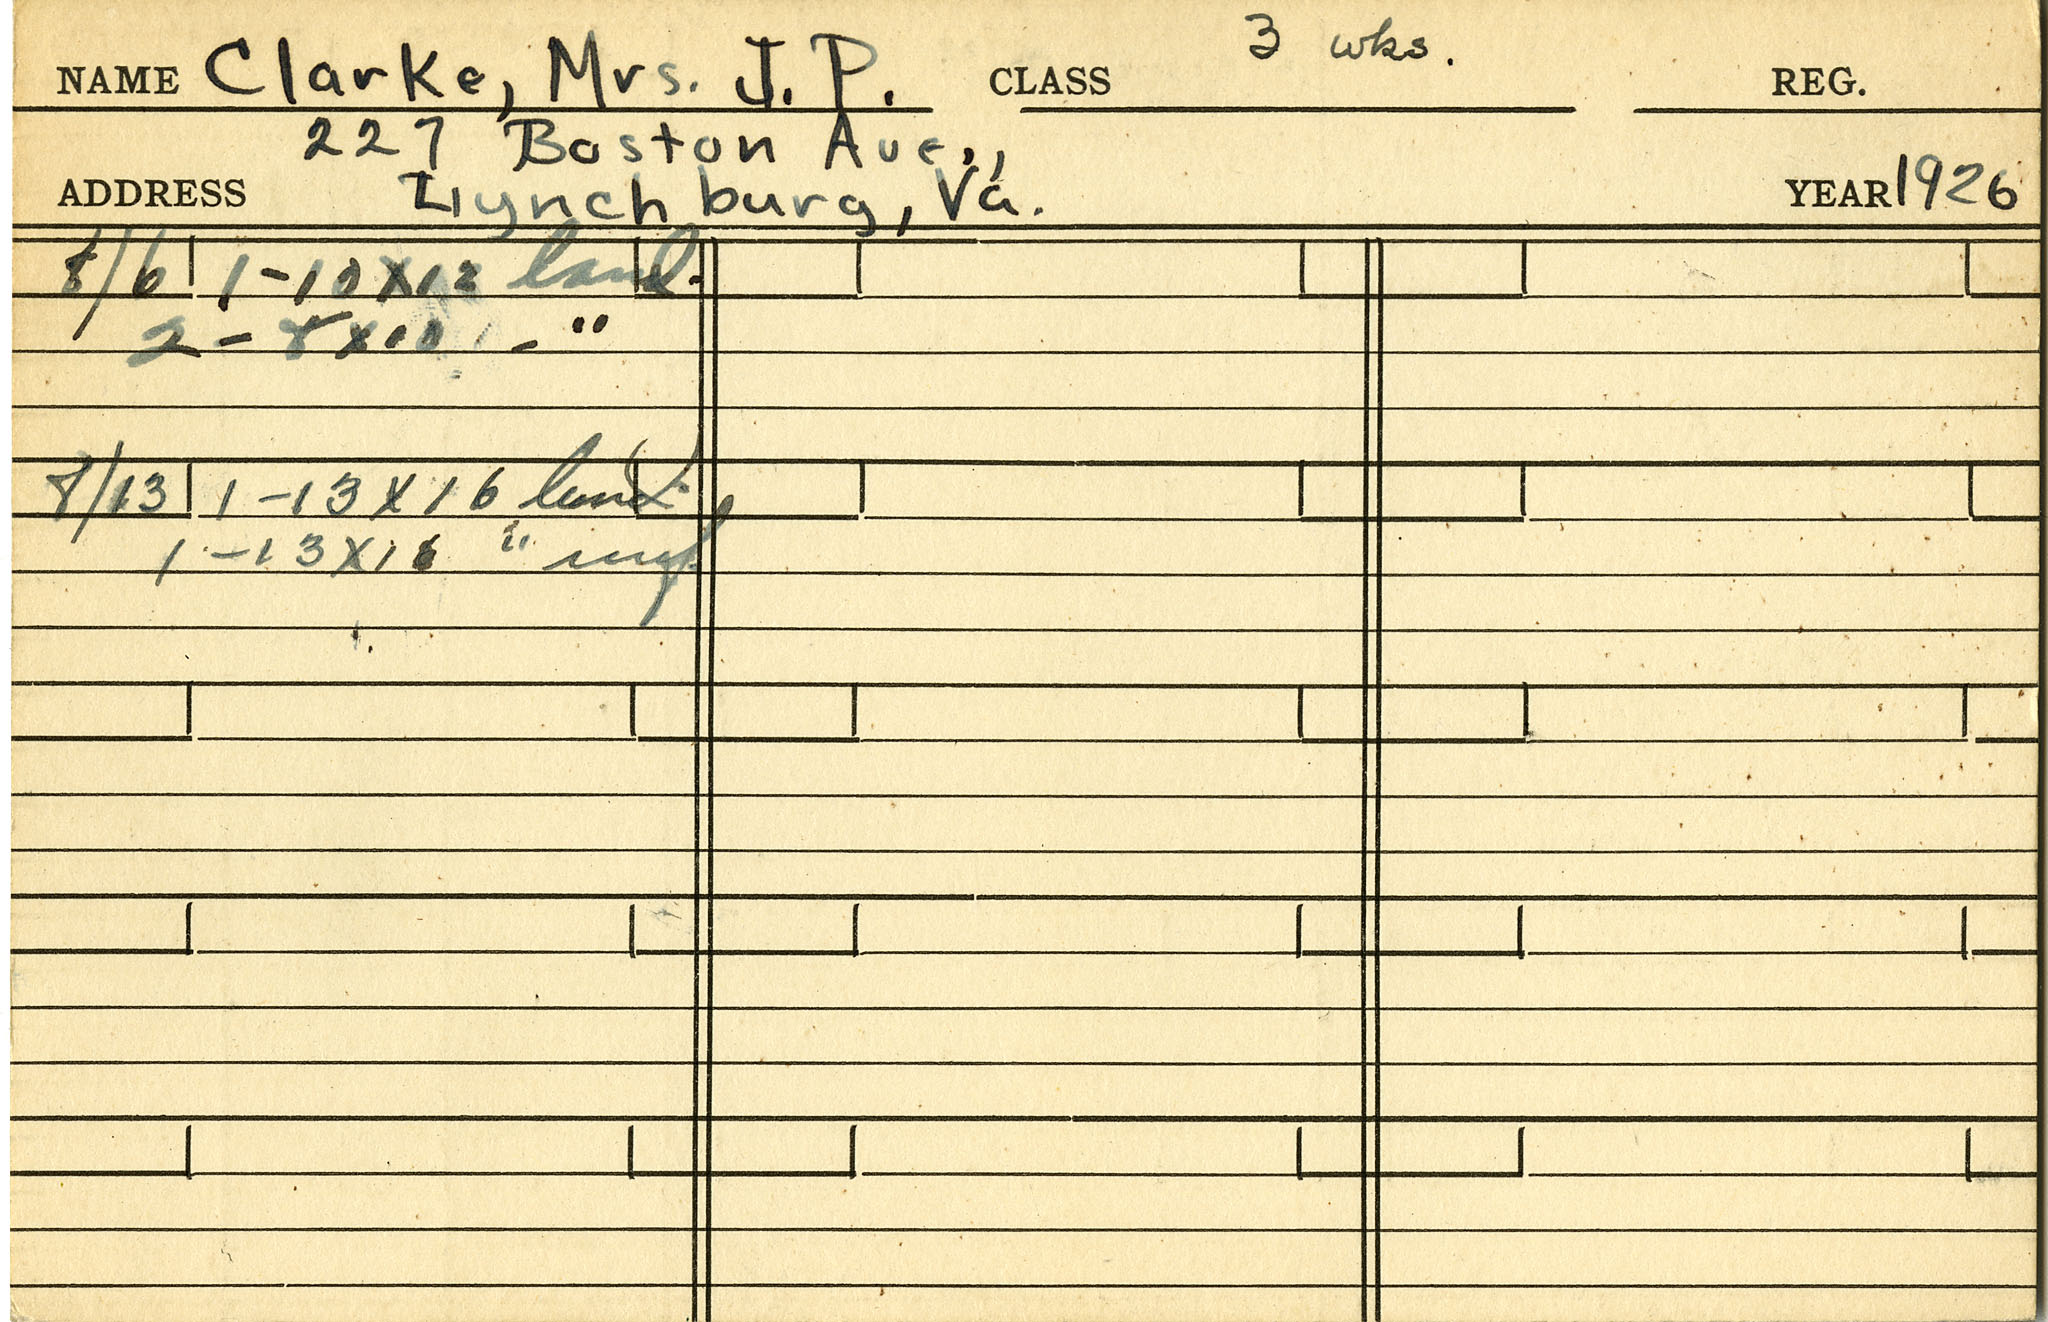 NAME Clarke, Mrs. J. P. CLASS 3 wks. REG.
227 Boston Ave.,
ADDRESS Lynchburg, Va. YEAR 1926
8/6 1-10X12 land.
2 - 8X10 - "
8/13 1-13X16 land.
1-13X16 "